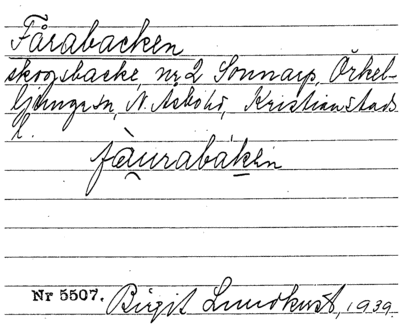 Fårabacken
skogsbacke, nr 2 Sonnarp, Örkel-
ljunga sn, N. Åsbo hd, Kristianstads
l.
fàu̯rabák̠en
Nr 5507. Birgit Lundkvist, 1939.